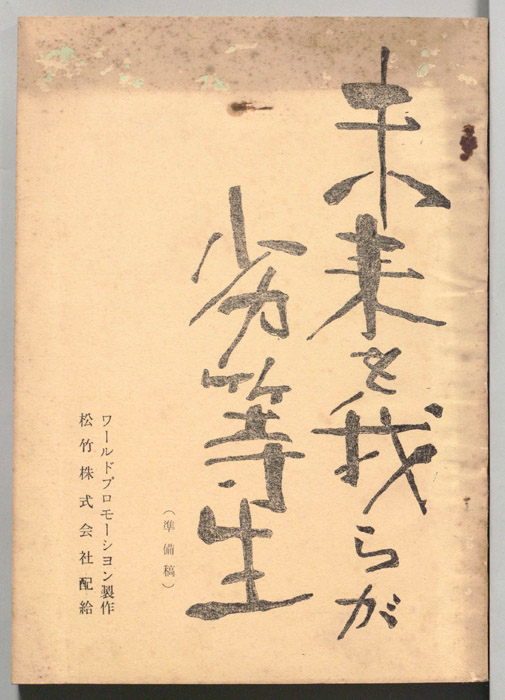 未来を我らが
劣等生
（準備稿）
ワールドプロモーシヨン製作
松竹株式会社配給